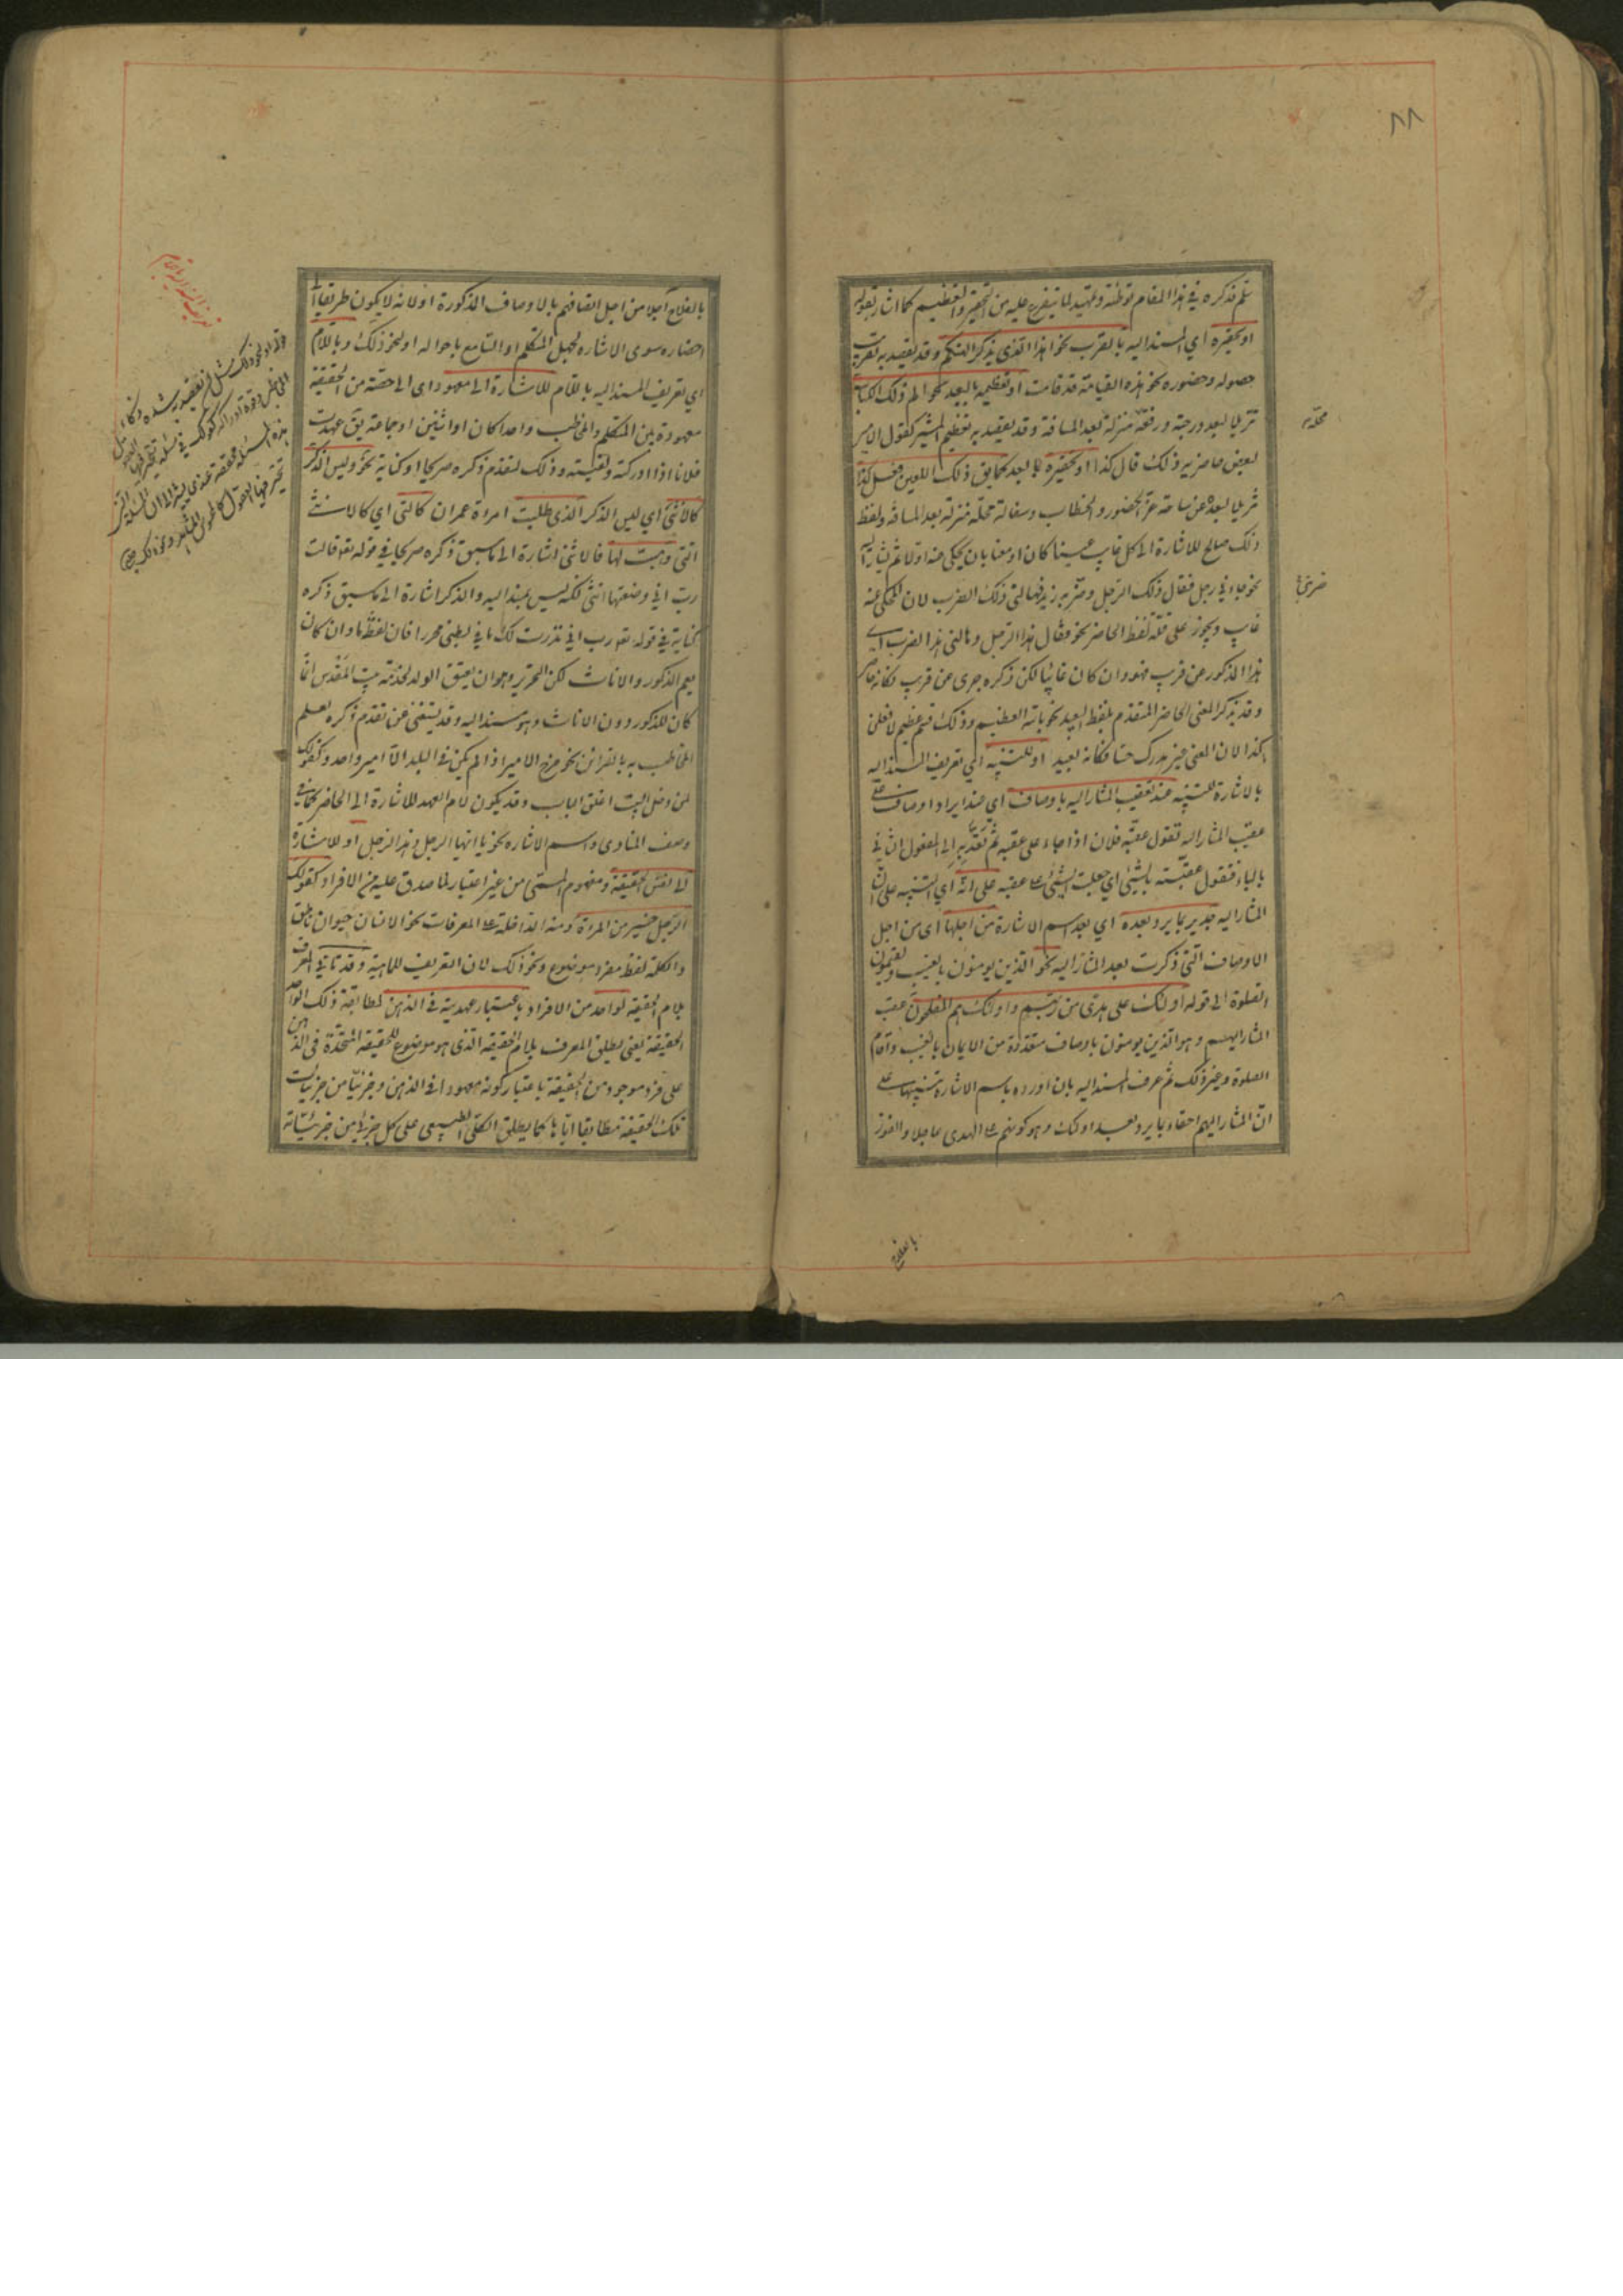 ٨٨
سلم فذكره في هذا المقام توطئة وتمهيد لما يتفرع عليه من التحقير والتعظيم كما اشار بقوله
او تحقيره اي المسند اليه بالقرب نحو اهذا الذي يذكر الهتكم وقد يقصد به تقريب
حصوله وحضوره نحو هذه القيامة قد قامت او تعظيمه بالبعد نحو الم ذلك الكتاب
تنزيلا لبعد درجته ورفعة منزلة بعد المسافة وقد يقصد به تعظيم المشير كقول الامير
لبعض حاضريه ذلك قال كذا او تحقيره بالبعد كما يق ذلك اللعين فعل كذا
تنزيلا لبعده عن ساحة عز الحضور والخطاب وسفالة محله منزلة بعد المسافة ولفظ
محله
ذلك صالح للاشارة الى كل غايب عينا كان او معنا بان يحكى عنه اولا ثم يشار اليه
نحو جاءني رجل فقال ذلك الرجل وضربني زيد فهالني ذلك الضرب لان المحكي عنه
ضربني
غايب ويجوز على قلة لفظ الحاضر نحو فقال هذا الرجل وهالني هذا الضرب اي
هذا المذكور عن قريب فهو وان كان غائبا لكن ذكره جرى عن قريب فكانه حاضر
وقد يذكر المعنى الحاضر المتقدم بلفظ البعيد نحو بالله العظيم وذلك قسم عظيم لافعلن
كذا لان المعنى غير مدرك حسا فكانه بعيد او للتنبيه اي تعريف المسند اليه
بالاشارة للتنبيه عند تعقيب المشار اليه باوصاف اي عند ايراد اوصاف على
عقيب المشار اليه تقول عقبه فلان اذا جاء على عقبه ثم تعديه الى المفعول الثاني
بالباء فتقول عقبته بالشيء اي جعلت الشيء على عقبه على انه اي للتنبيه على ان
المشار اليه جدير بما يرد بعده اي بعد اسم الاشارة من اجلها اي من اجل
الاوصاف التي ذكرت بعد المشار اليه نحو الذين يومنون بالغيب ويقيمون
الصلوة الى قوله اولئك على هدى من ربهم واولئك هم المفلحون عقب
المشار اليهم وهو الذين يومنون باوصاف متعددة من الايمان بالغيب واقام
الصلوة وغير ذلك ثم عرف المسند اليه بان اورده باسم الاشارة تنبيها على
ان المشار اليهم احقاء بما يرد بعد اولئك وهو كونهم على الهدى عاجلا والفوز
بالفلاح
بالفلاح آجلا من اجل اتصافهم بالاوصاف المذكورة او لانه لا يكون طريقا الى
احضاره سوى الاشارة لجهل المتكلم او السامع باحواله او لنحو ذلك وباللام
اي تعريف المسند اليه باللام للاشارة الى معهود اي الى حصة من الحقيقة
معهودة بين المتكلم والمخاطب واحدا كان او اثنين او جماعة يق عهدت
فلانا اذا ادركته ولقيته وذلك لتقدم ذكره صريحا او كناية نحو وليس الذكر
كالانثى اي ليس الذكر الذي طلبت امراة عمران كالتي اي كالانثى
التي وهبت لها فالانثى اشارة الى ما سبق ذكره صريحا في قوله تع قالت
رب اني وضعتها انثى لكنه ليس بمسند اليه والذكر اشارة الى ما سبق ذكره
كناية في قوله تع رب اني نذرت لك ما في بطني محررا فان لفظ ما وان كان
يعم الذكور والاناث لكن التحرير وهو ان يعتق الولد لخدمة بيت المقدس انما
كان للذكور دون الاناث وهو مسند اليه وقد يستغنى عن تقدم ذكره لعلم
المخاطب به بالقرائن نحو خرج الامير اذا لم يكن في البلد الا امير واحد وكقولك
لمن دخل البيت اغلق الباب وقد يكون لام العهد للاشارة الى الحاضر كما في
وصف المنادى واسم الاشارة نحو يا ايها الرجل وهذا الرجل او للاشارة
الى نفس الحقيقة ومفهوم المسمى من غير اعتبار لما صدق عليه من الافراد كقولك
الرجل خير من المراة ومنه الداخلة على المعرفات نحو الانسان حيوان ناطق
والكلمة لفظ مفرد موضوع ونحو ذلك لان التعريف للماهية وقد ياتي المعرف
بلام الحقيقة لواحد من الافراد باعتبار عهديته في الذهن لمطابقة ذلك الواحد
الحقيقة يعني يطلق المعرف بلام الحقيقة الذي هو موضوع للحقيقة المتحدة في الذهن
على فرد موجود من الحقيقة باعتبار كونه معهودا في الذهن وجزئيا من جزئيات
تلك الحقيقة مطابقا اياها كما يطلق الكلي الطبيعي على كل جزئي من جزئياته